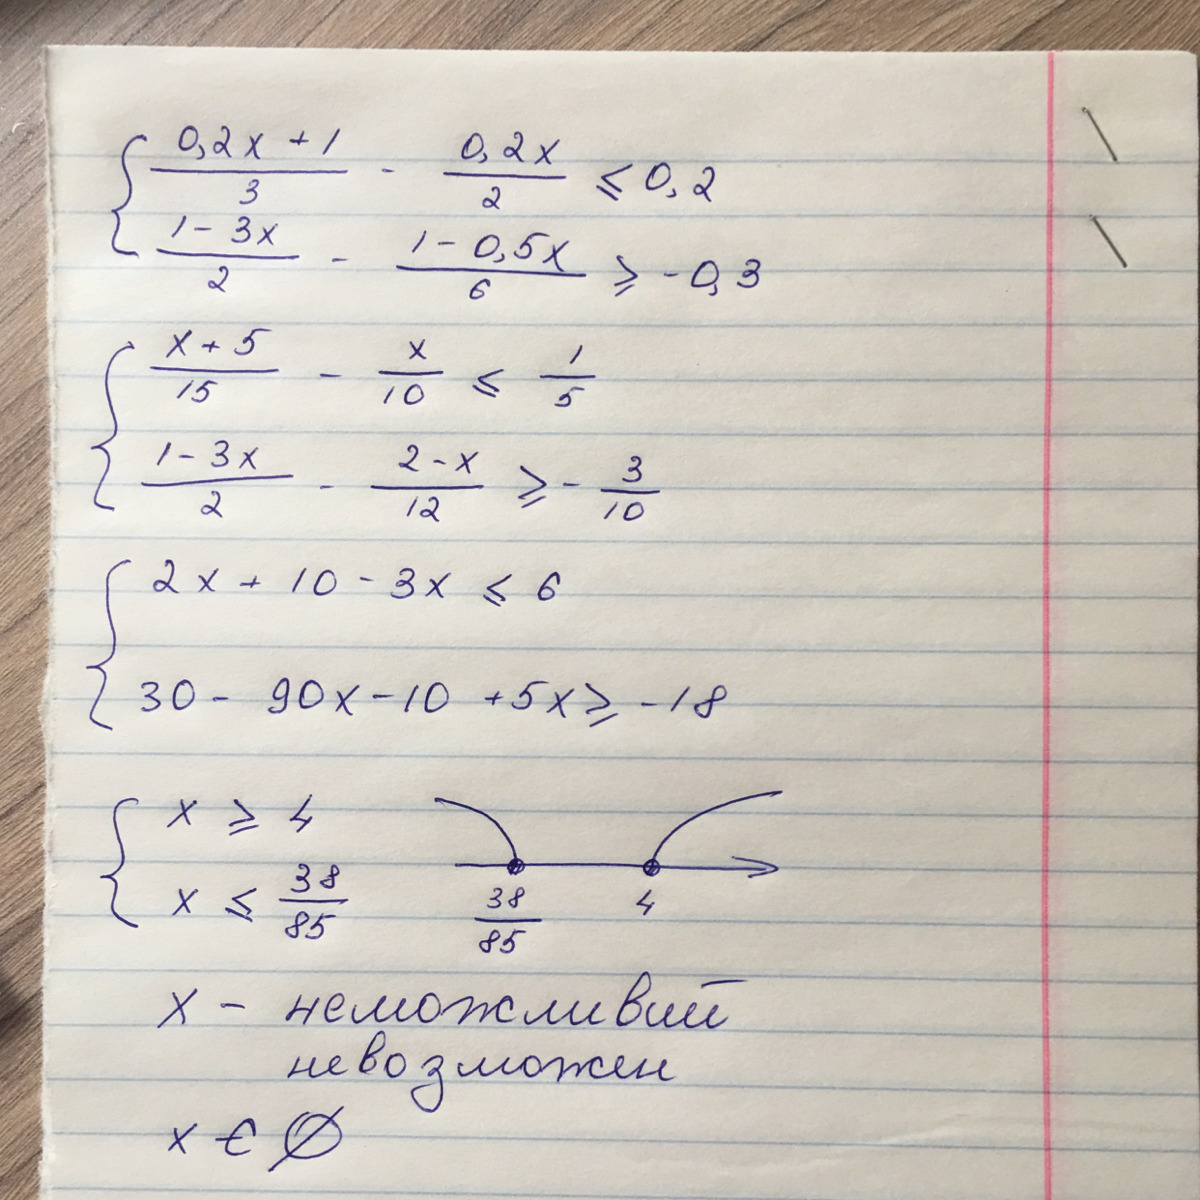 { (0,2x + 1)/3 - 0,2x/2 ⩽ 0,2
(1 - 3x)/2 - (1 - 0,5x)/6 ⩾ -0,3
{ (x + 5)/15 - x/10 ⩽ 1/5
(1 - 3x)/2 - (2 - x)/12 ⩾ - 3/10
{ 2x + 10 - 3x ⩽ 6
30 - 90x - 10 + 5x ⩾ -18
{ x ⩾ 4
x ⩽ 38/85
38/85 4
x - неможливий
невозможен
x ∈ ∅